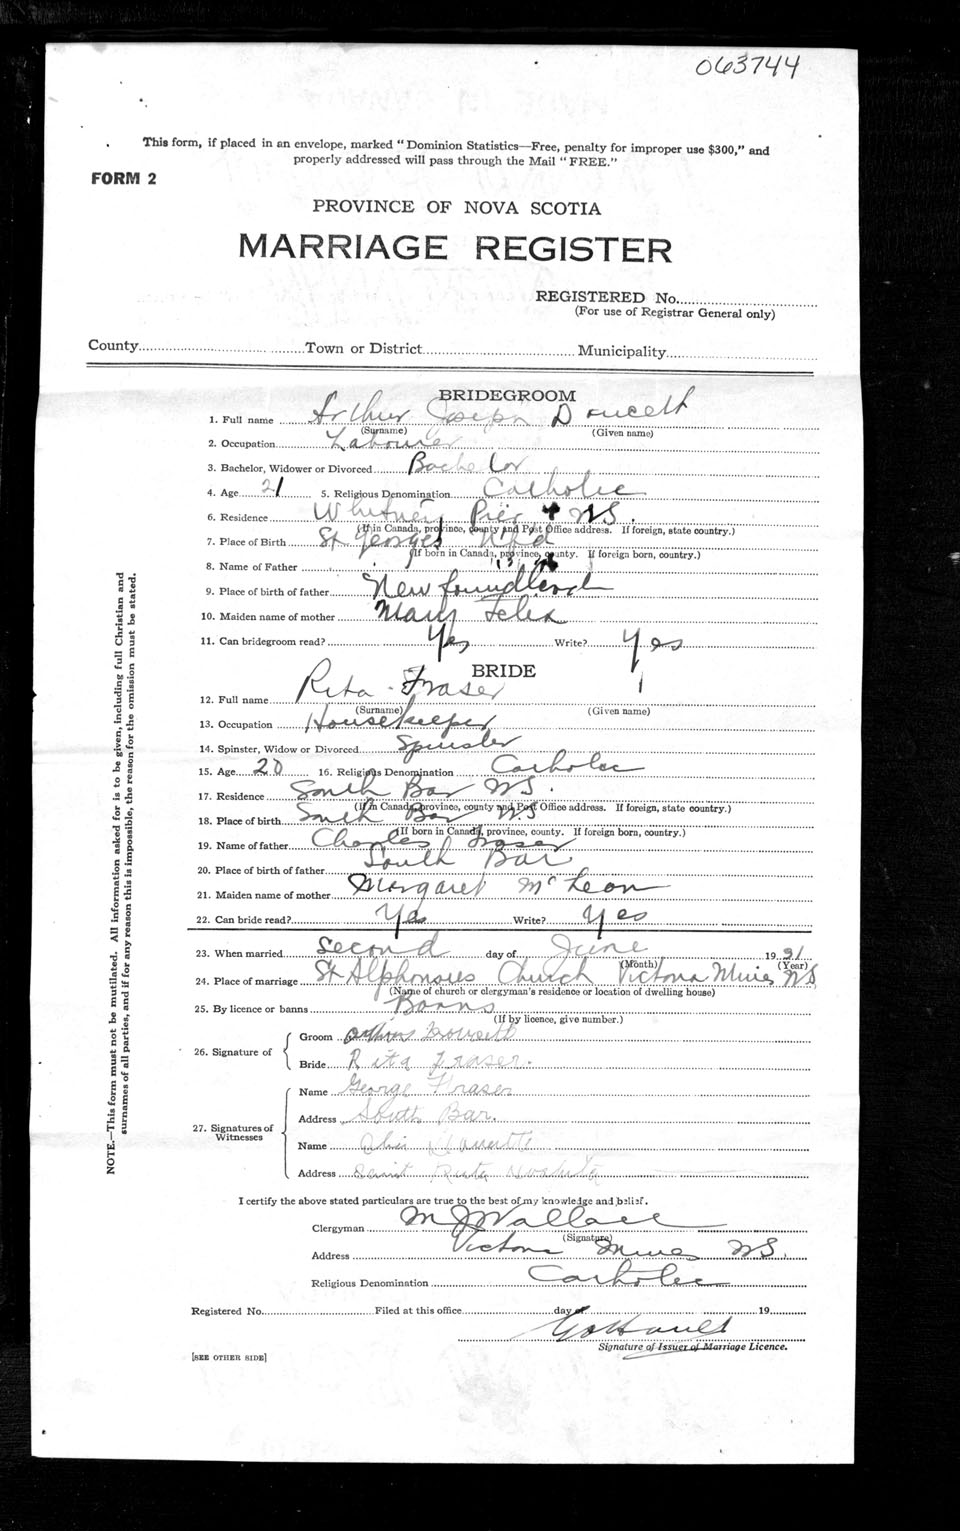 063744
This form, if placed in an envelope, marked "Dominion Statistics—Free, penalty for improper use $300," and
properly addressed will pass through the Mail "FREE."
FORM 2
PROVINCE OF NOVA SCOTIA
MARRIAGE REGISTER
REGISTERED No.
(For use of Registrar General only)
County Town or District Municipality
BRIDEGROOM
1. Full name Arthur Joseph Doucett
(Surname) (Given name)
2. Occupation Labourer
3. Bachelor, Widower or Divorced Bachelor
4. Age 21 5. Religious Denomination Catholic
6. Residence Whitney Pier NS.
(If in Canada, province, county and Post Office address. If foreign, state country.)
7. Place of Birth St Georges Nfd
(If born in Canada, province, county. If foreign born, country.)
8. Name of Father
9. Place of birth of father Newfoundland
10. Maiden name of mother Mary
11. Can bridegroom read? Yes Write? Yes
BRIDE
12. Full name Rita Fraser
(Surname) (Given name)
13. Occupation Housekeeper
14. Spinster, Widow or Divorced Spinster
15. Age 20 16. Religious Denomination Catholic
17. Residence South Bar NS.
(If in Canada, province, county and Post Office address. If foreign, state country.)
18. Place of birth South Bar NS
(If born in Canada, province, county. If foreign born, country.)
19. Name of father Charles Fraser
20. Place of birth of father South Bar
21. Maiden name of mother Margaret McLeon
22. Can bride read? Yes Write? Yes
23. When married Second day of June 19
(Month) (Year)
24. Place of marriage St Alphonsus Church Victoria Mines NS
(Name of church or clergyman's residence or location of dwelling house)
25. By licence or banns Banns
(If by licence, give number.)
26. Signature of
Groom Arthur Doucett
Bride Rita Fraser.
27. Signatures of Witnesses
Name George Fraser
Address South Bar.
Name
Address
I certify the above stated particulars are true to the best of my knowledge and belief.
Clergyman M J Wallace
(Signature)
Address Victoria Mines NS.
Religious Denomination Catholic
Registered No. Filed at this office day of 19
Signature of Issuer of Marriage Licence.
[SEE OTHER SIDE]
NOTE.—This form must not be mutilated. All information asked for is to be given, including full Christian and
surnames of all parties, and if for any reason this is impossible, the reason for the omission must be stated.